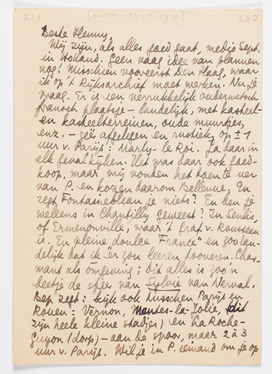 Beste Henny,
Wij zijn, als alles goed gaat, medio Sept.
in Holland. Geen vaag idee van plannen
nog. Misschien nooveerst Den Haag, waar
ik op 't Rijksarchief moet werken. Nu je
vraag. Er is een verrukkelijk ouderwetsch
fransch plaatsje – landelijk, met kasteel
en kasteelterreinen, oude muurtjes,
enz. – zéér afgelegen en rustiek, op ± 1
uur v. Parijs: Marly-le-Roi. Ga daar in
elk geval kijken. Het was daar ook goed-
koop, maar wij vonden het toen te ver
van P. en kozen daarom Bellevue. En
zegt Fontainebleau je niets? En ben je
weleens in Chantilly geweest? In Senlis,
of Ermenonville, waar 't graf v. Rousseau
is. En pleine "doulce France" en zoo lan-
delijk dat ik er zou leeren
mant als omgeving; dit alles is zoo'n
beetje de sfeer van Sylvie van Nerval.
Dep zegt: kijk ook tusschen Parijs en
Rouen: Vernon, Mantes-la-Jolie, (dit
zijn heele kleine stadjes) en La Roche-
Guyon (dorp) – aan de spoor, maar 2 à 3
uur v. Parijs. Wil je in P. iemand om je op